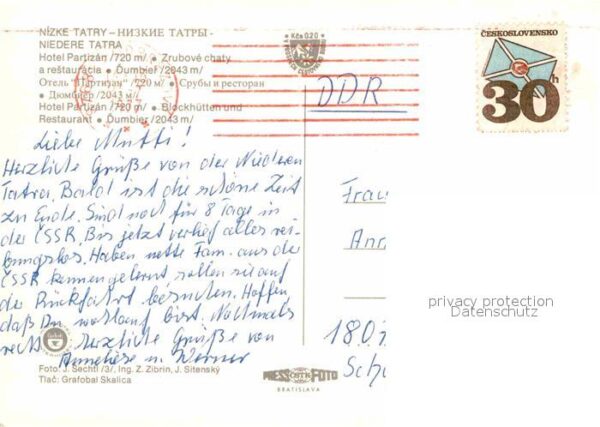 NÍZKE TATRY – НИЗКИЕ ТАТРЫ -
NIEDERE TATRA
Hotel Partizán /720 m/ • Zrubové chaty
a reštaurácia • Ďumbier /2043 m/
Отель "Партизан" /720 м/ • Срубы и ресторан
• Дюмбиер /2043 м/
Hotel Partizán /720 m/ • Blockhütten und
Restaurant • Ďumbier /2043 m/
Kčs 0,20
ČESKOSLOVENSKO
30h
DDR
Liebe Mutti!
Herzliche Grüße von der Niederen
Tatra. Bald ist die schöne Zeit
zu Ende. Sind noch für 8 Tage in
der ČSSR. Bis jetzt verlief alles rei-
bungslos. Haben nette Fam. aus der
ČSSR kennengelernt sollen sie auf
der Rückfahrt besuchen. Hoffen,
daß Du wohlauf bist. Nochmals
recht herzliche Grüße von
Anneliese u. Werner
Frau
Ann
180
Sch
privacy protection
Datenschutz
Foto: J. Sechtl /3/, Ing. Z. Zibrín, J. Sitenský
Tlač: Grafobal Skalica
PRESSFOTO
BRATISLAVA